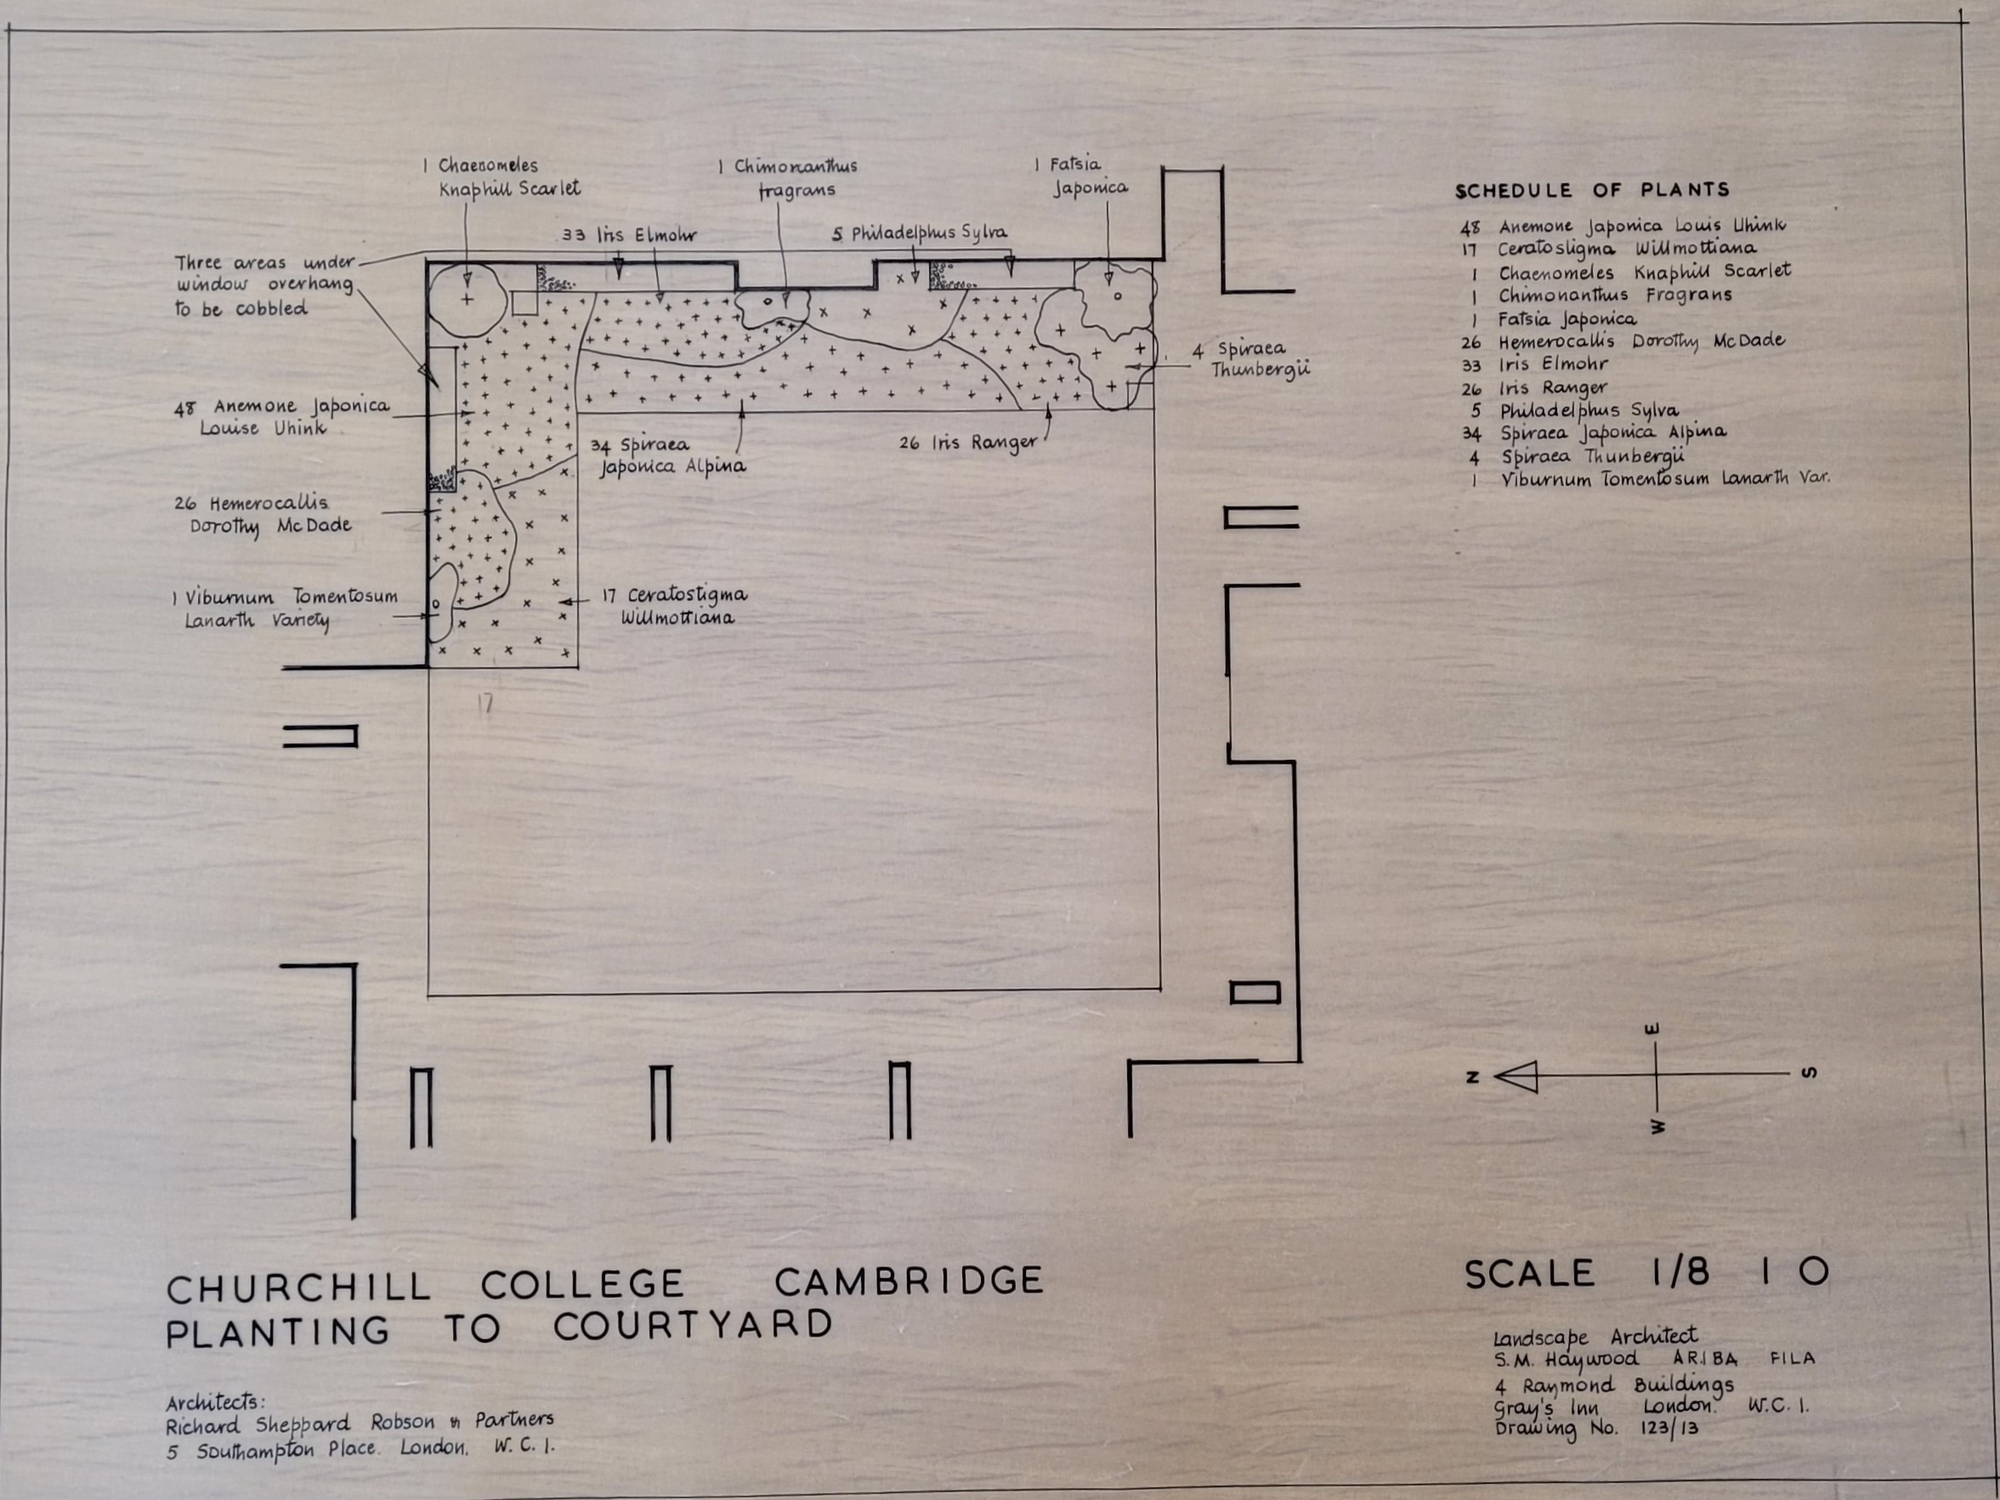 1 Chaenomeles
Knaphill Scarlet
1 Chimonanthus
fragrans
1 Fatsia
Japonica
33 Iris Elmohr
5 Philadelphus Sylva
Three areas under
window overhang
to be cobbled
4 Spiraea
Thunbergii
48 Anemone Japonica
Louise Uhink
34 Spiraea
Japonica Alpina
26 Iris Ranger
26 Hemerocallis
Dorothy McDade
1 Viburnum Tomentosum
Lanarth Variety
17 Ceratostigma
Willmottiana
17
SCHEDULE OF PLANTS
48 Anemone Japonica Louis Uhink
17 Ceratostigma Willmottiana
1 Chaenomeles Knaphill Scarlet
1 Chimonanthus Fragrans
1 Fatsia Japonica
26 Hemerocallis Dorothy McDade
33 Iris Elmohr
26 Iris Ranger
5 Philadelphus Sylva
34 Spiraea Japonica Alpina
4 Spiraea Thunbergii
1 Viburnum Tomentosum Lanarth Var.
E
N
S
W
CHURCHILL COLLEGE CAMBRIDGE
PLANTING TO COURTYARD
Architects:
Richard Sheppard Robson & Partners
5 Southampton Place. London. W.C.1.
SCALE 1/8 1 0
Landscape Architect
S.M. Haywood A.R.I.B.A F.I.L.A
4 Raymond Buildings
Gray's Inn London. W.C.1.
Drawing No. 123/13